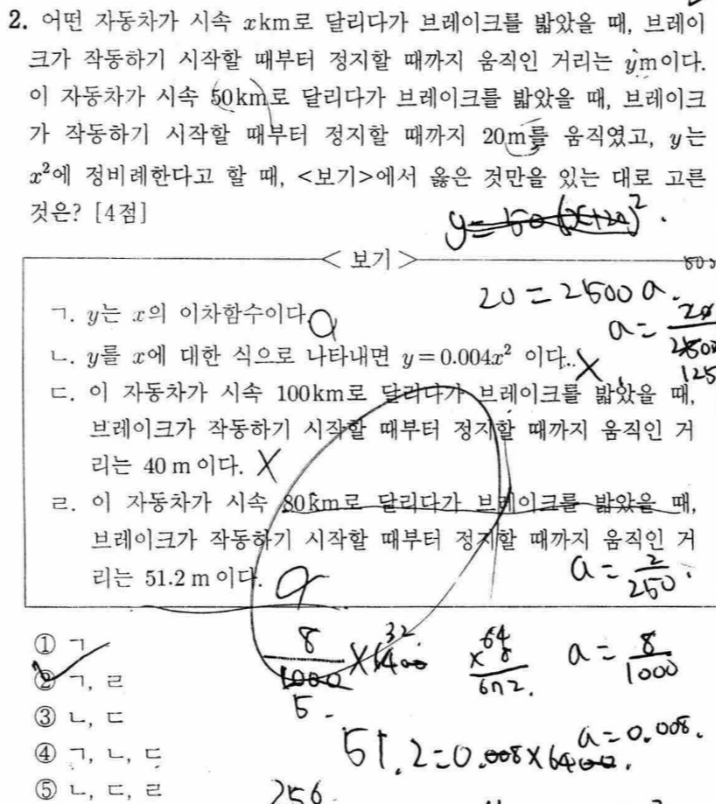 2. 어떤 자동차가 시속 xkm로 달리다가 브레이크를 밟았을 때, 브레이
크가 작동하기 시작할 때부터 정지할 때까지 움직인 거리는 ym이다.
이 자동차가 시속 50km로 달리다가 브레이크를 밟았을 때, 브레이크
가 작동하기 시작할 때부터 정지할 때까지 20m를 움직였고, y는
x²에 정비례한다고 할 때, <보기>에서 옳은 것만을 있는 대로 고른
것은? [4점]
< 보기 >
20 = 2500a.
ㄱ. y는 x의 이차함수이다.
ㄴ. y를 x에 대한 식으로 나타내면 y=0.004x² 이다. X
125
ㄷ. 이 자동차가 시속 100km로 달리다가 브레이크를 밟았을 때,
브레이크가 작동하기 시작할 때부터 정지할 때까지 움직인 거
리는 40 m이다. X
ㄹ. 이 자동차가 시속 80km로 달리다가 브레이크를 밟았을 때,
브레이크가 작동하기 시작할 때부터 정지할 때까지 움직인 거
리는 51.2 m이다.
a = 2/250.
① ㄱ
② ㄱ, ㄹ
a = 8/1000
③ ㄴ, ㄷ
a = 0.008.
④ ㄱ, ㄴ, ㄷ
51.2 = 0.008 × 6400.
⑤ ㄴ, ㄷ, ㄹ
256